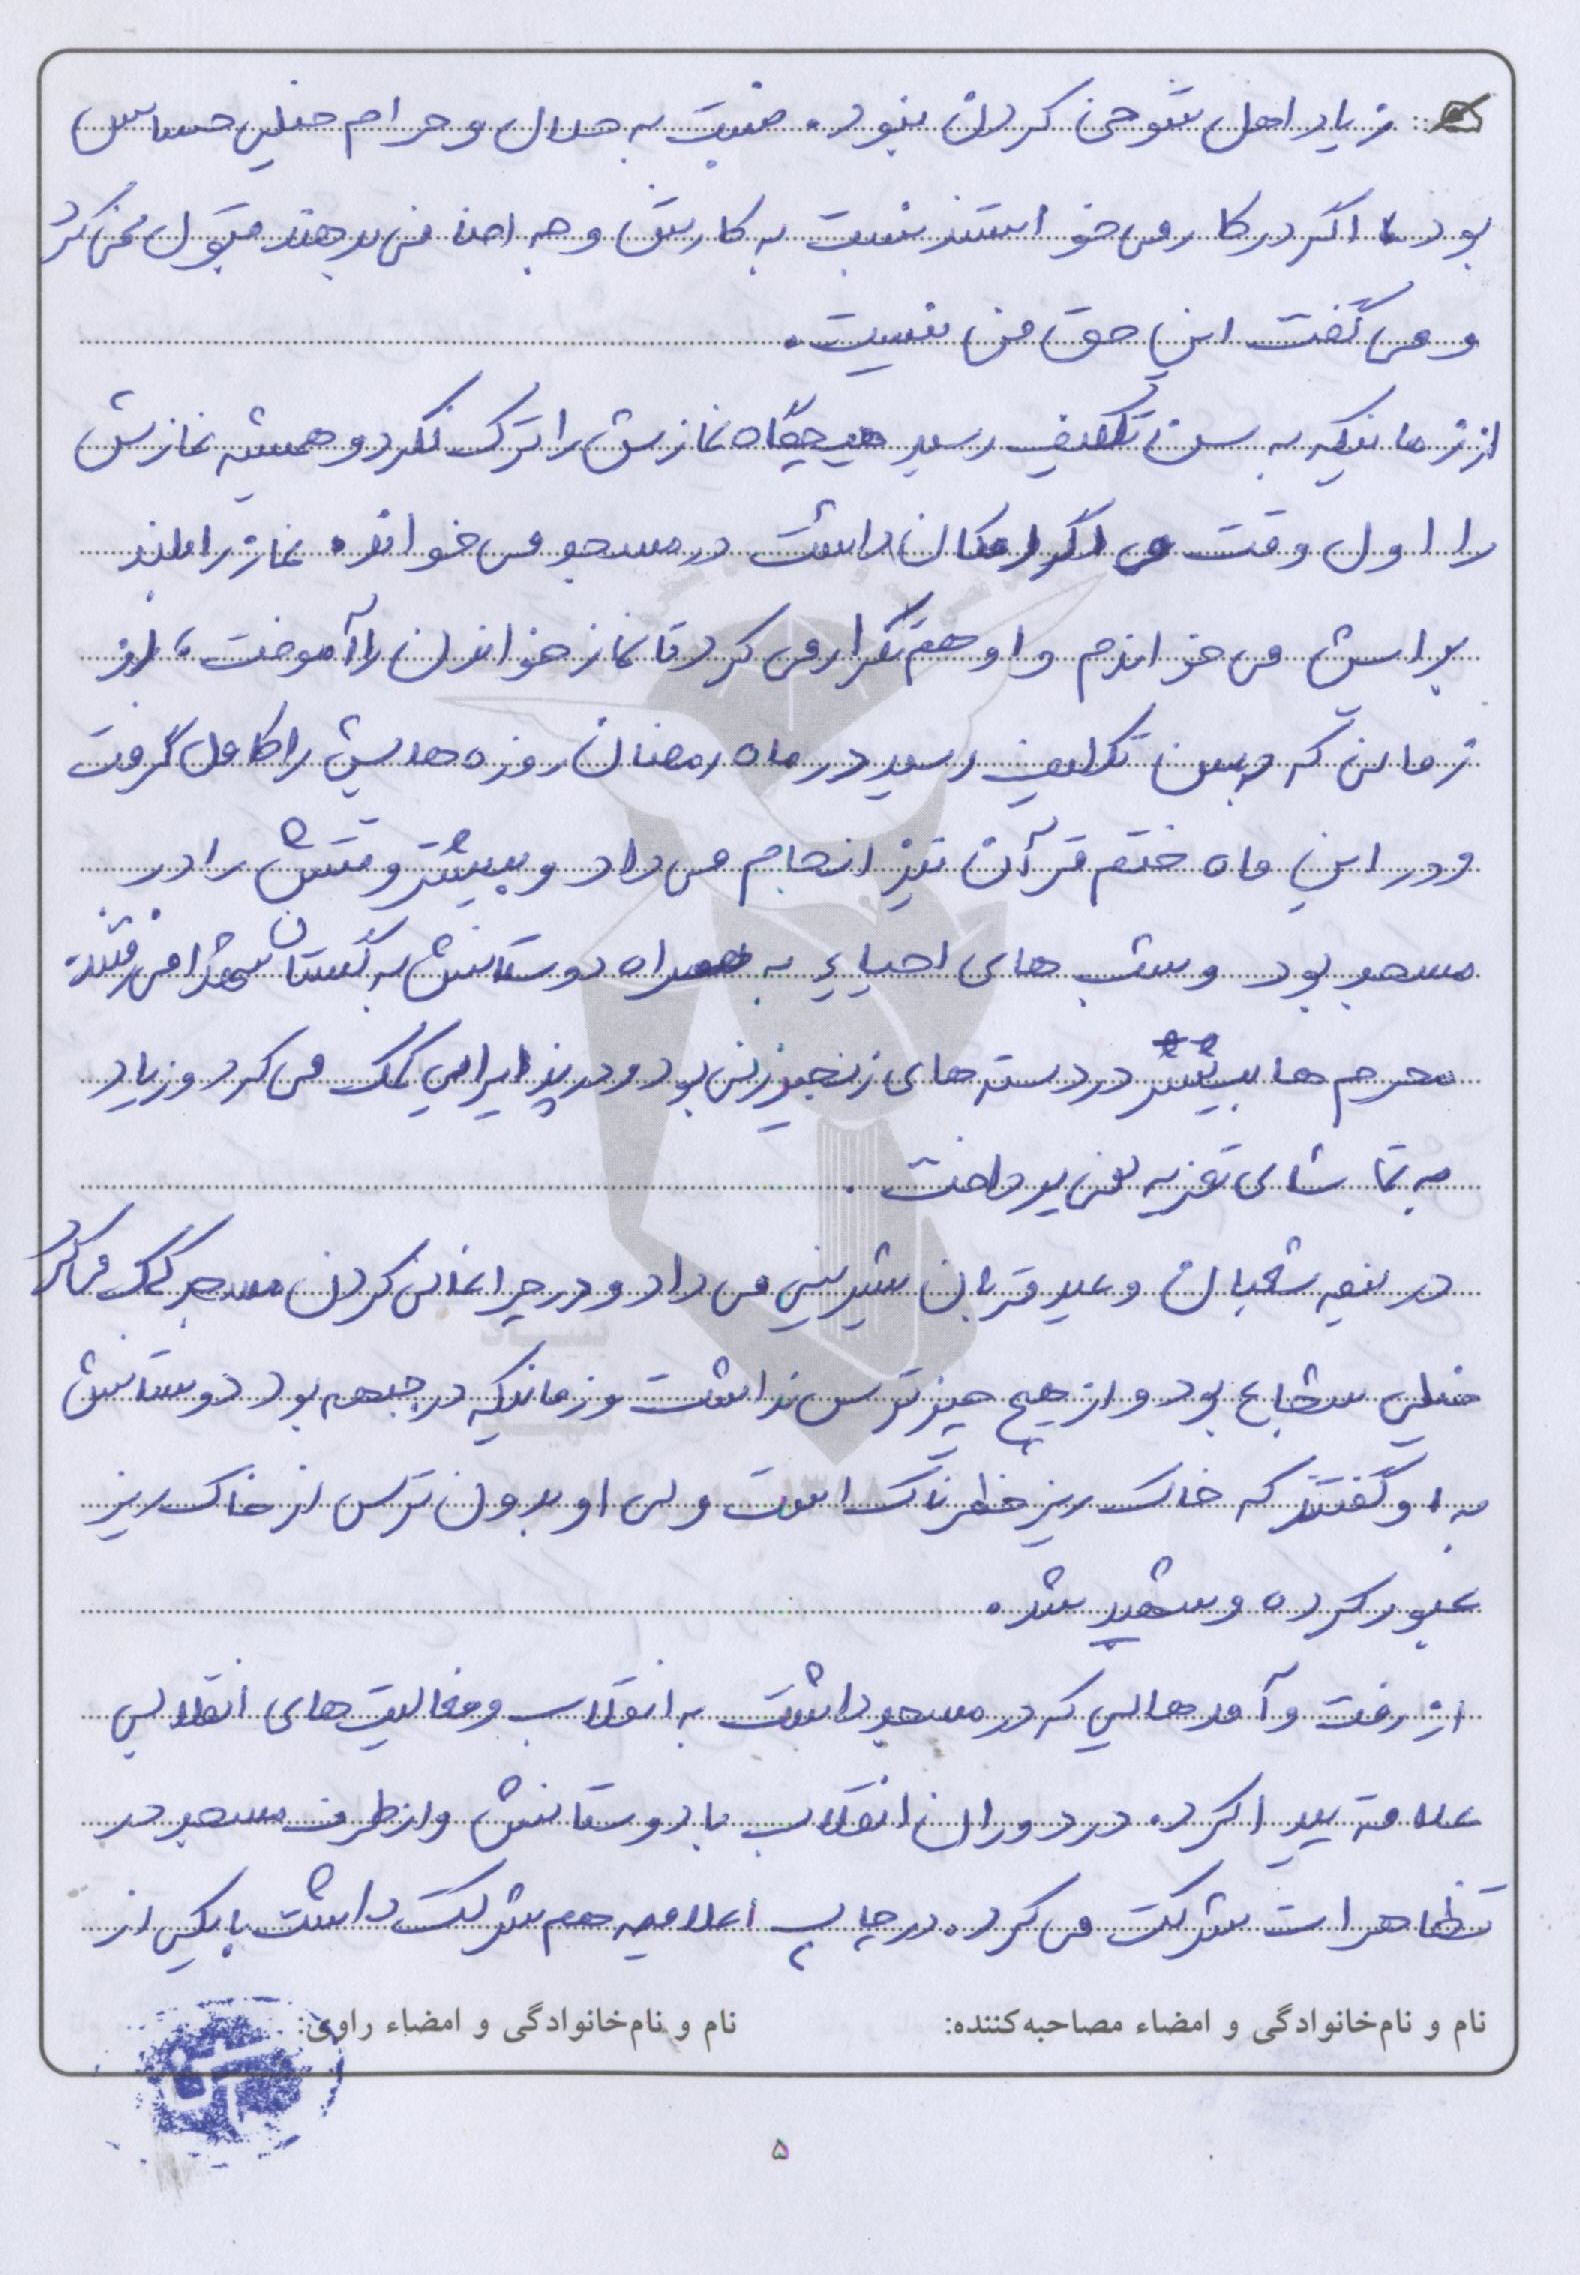 زیاد اهل شوخی کردن نبود. نسبت به حلال و حرام خیلی حساس
بود، اگر در کار می خواستند نسبت به کارش وجه اضافی بدهند قبول نمی کرد
و می گفت این حق من نیست.
از زمانیکه به سن تکلیف رسید هیچگاه نمازش را ترک نکرد و همیشه نمازش
را اول وقت و اگر امکان داشت در مسجد می خواند. نماز را بلند
برایش می خواندم و او هم تکرار می کرد تا نماز خواندن را آموخت، از
زمانی که به سن تکلیف رسید در ماه رمضان روزه هایش را کامل گرفت
و در این ماه ختم قرآن نیز انجام می داد و بیشتر وقتش را در
مسجد بود و شب های احیاء به همراه دوستانش به گلستان شهدا می رفتند.
محرم ها بیشتر در دسته های زنجیر زنی بود و در پذیرایی کمک می کرد و زیاد
به تماشای تعزیه نمی پرداخت.
در نیمه شعبان و عید قربان شیرینی می داد و در چراغانی کردن مسجد کمک می کرد
خیلی شجاع بود و از هیچ چیز ترس نداشت و زمانیکه در جبهه بود دوستانش
به او گفتند که خاک ریز خطرناک است ولی او بدون ترس از خاک ریز
عبور کرده و شهید شد.
از رفت و آمدهایی که در مسجد داشت به انقلاب و فعالیت های انقلابی
علاقه پیدا کرد. در دوران انقلاب با دوستانش و از طرف مسجد در
تظاهرات شرکت می کرد. در چاپ اعلامیه هم شرکت داشت با یکی از
نام و نام‌خانوادگی و امضاء مصاحبه‌کننده: نام و نام‌خانوادگی و امضاء راوی:
۵